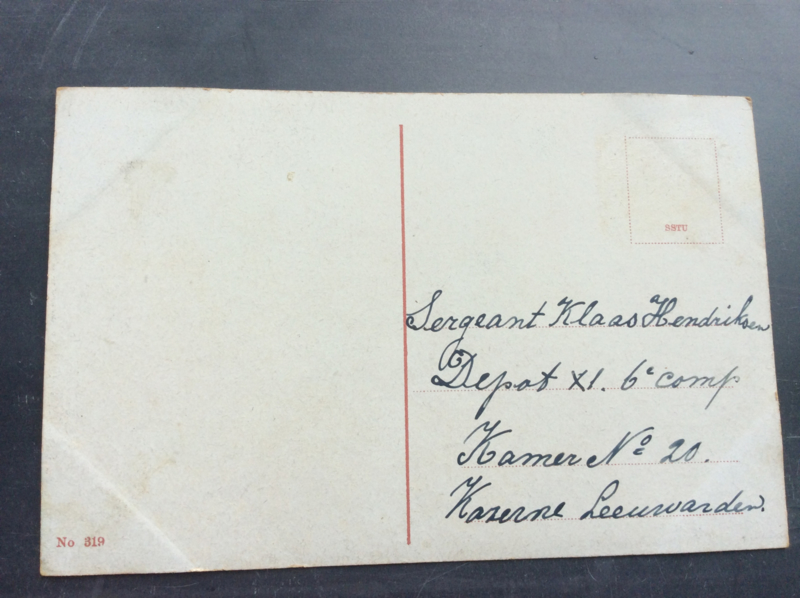 SSTU
Sergeant Klaas Hendriksen
Depot XI. 6e comp
Kamer No 20.
Kaserne Leeuwarden.
No 319